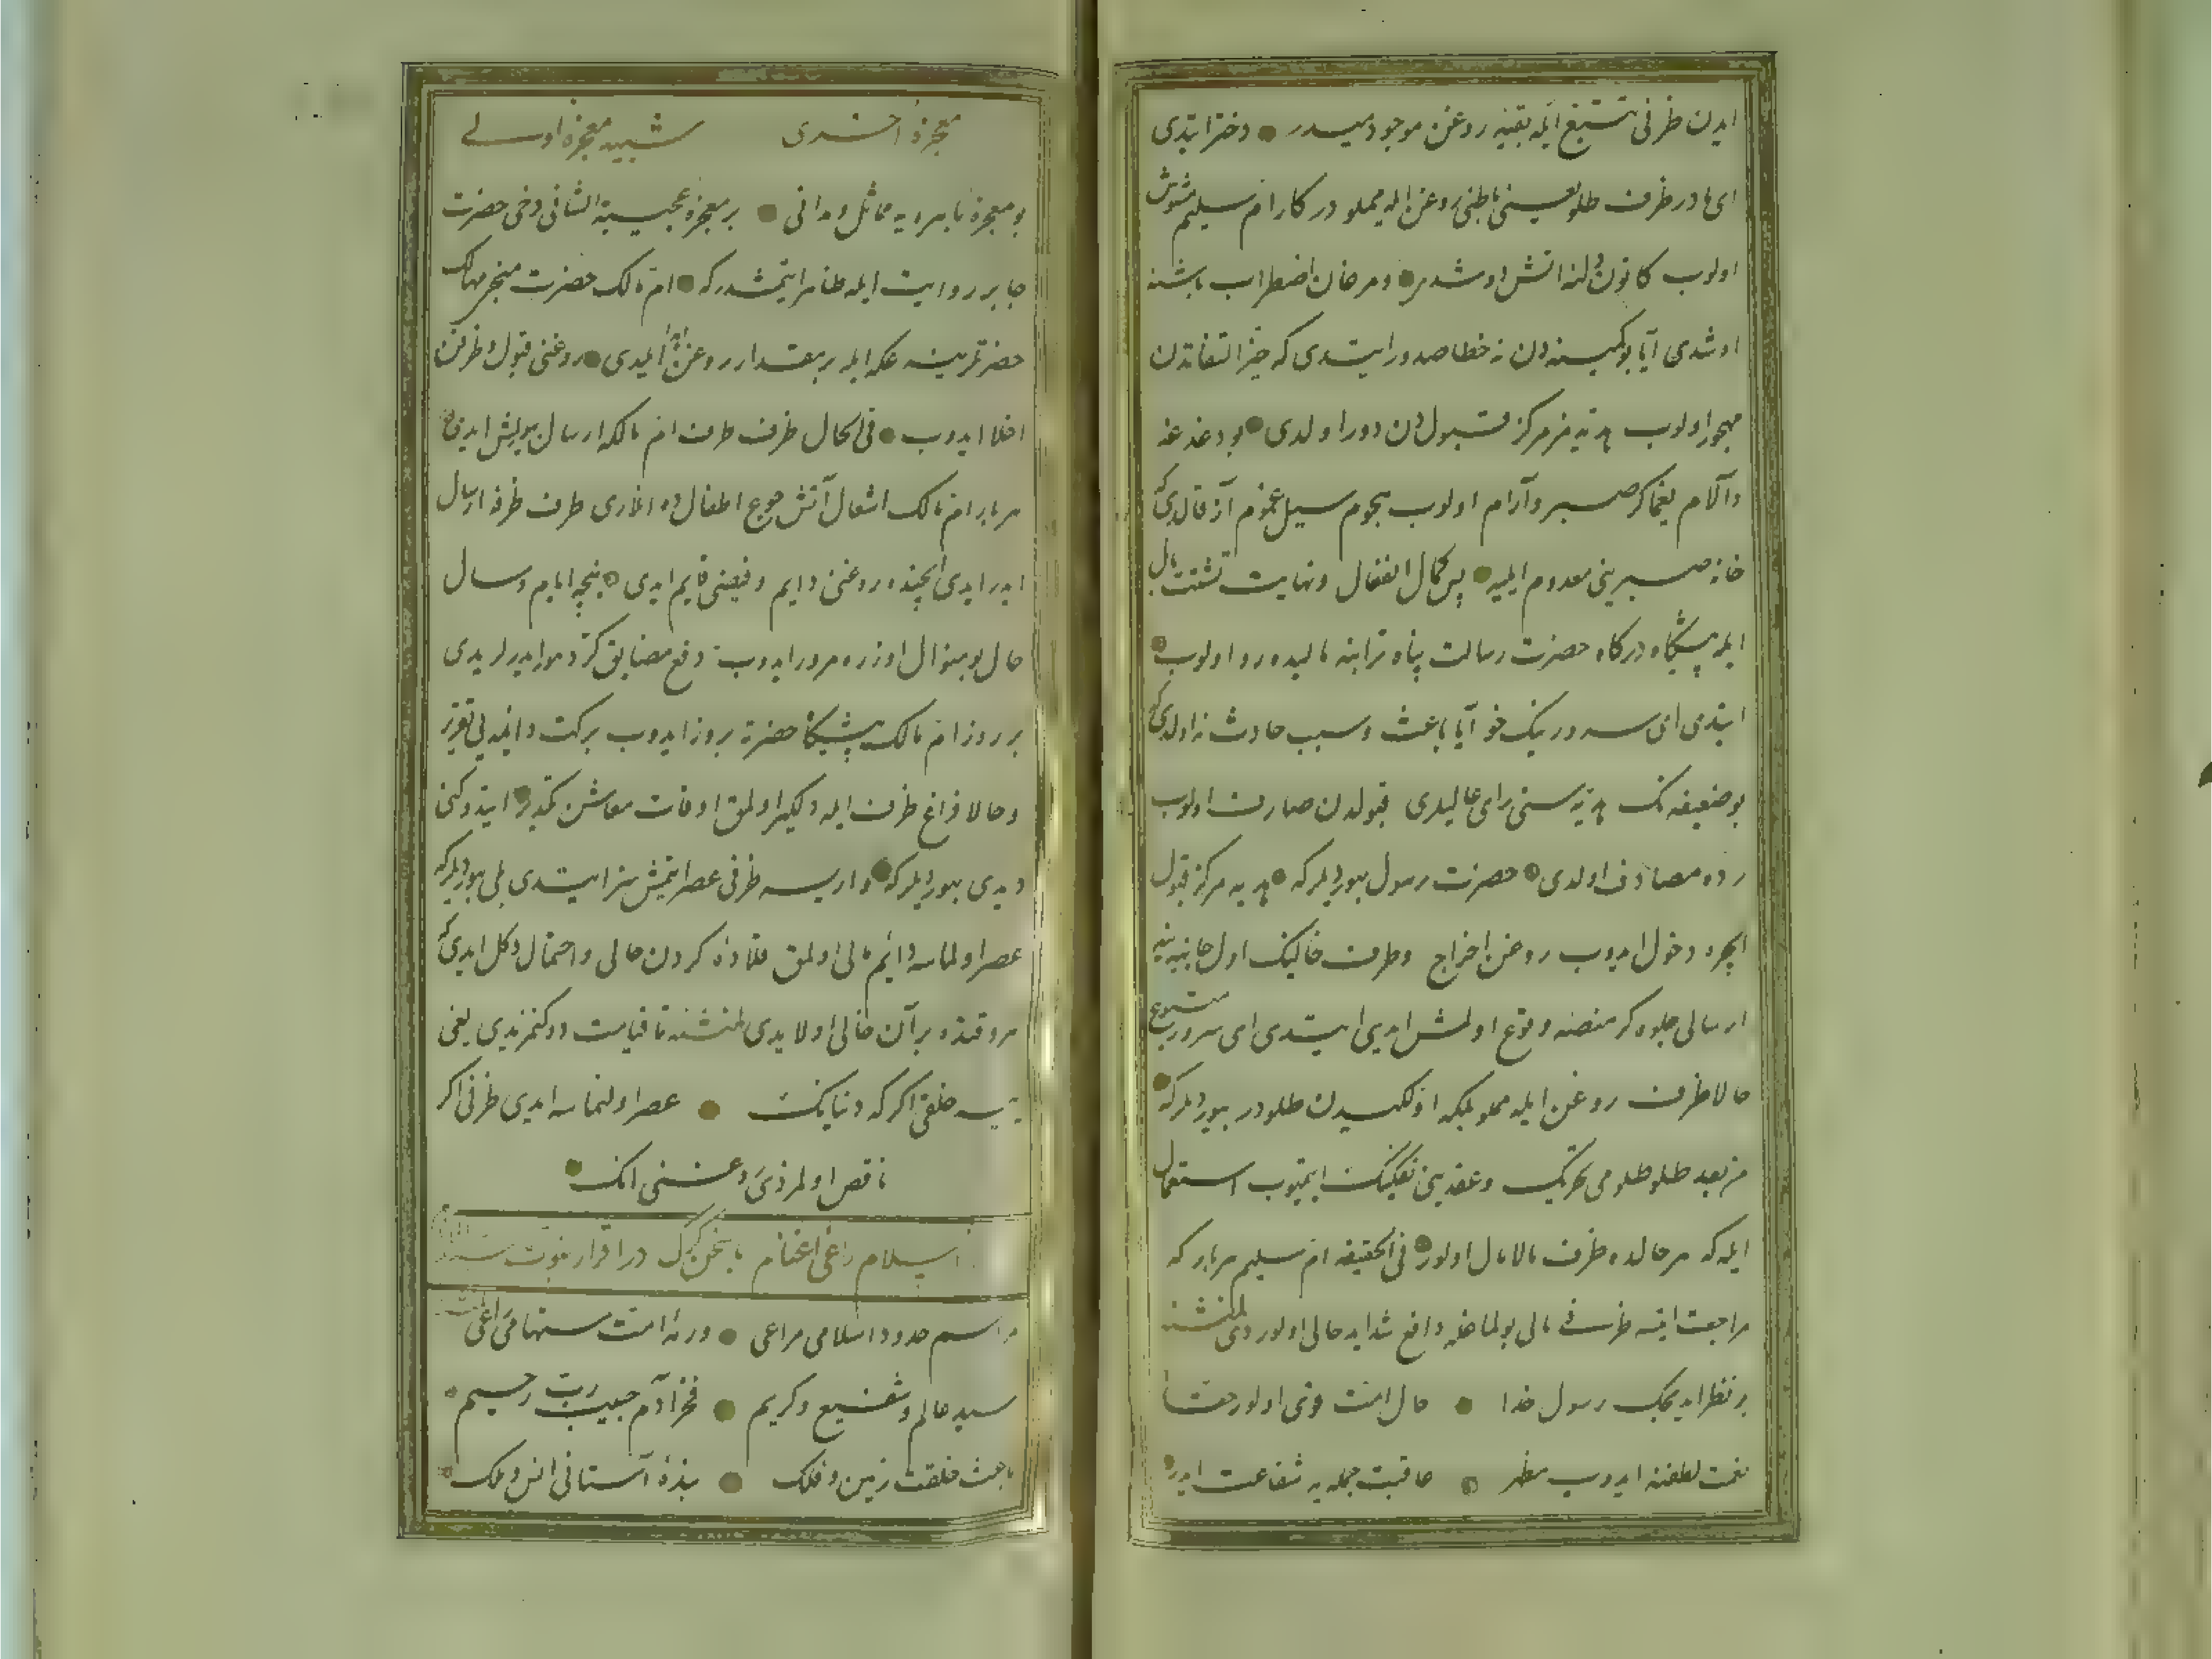 ایدن ظرفی تتبع ایله بقیه روغن موجودمیدر دختر ایتدی
ای مادر ظرف طلو یعنی باطنی روغن ایله مملو در کار ام سلیم مشوش
اولوب کانون دلنه آتش دوشدی و مرغان اضطراب باشنه
اوشدی آیا بو کمینه دن نه خطا صدور ایتدی که حیز التفاتدن
مهجور اولوب هدیه مز مرکز قبولدن دور اولدی بو دغدغه
وآلام یغماکر صبر وآرام اولوب هجوم سیل غموم آز قالدی که
خانهٔ صبرینی معدوم ایلیه پس کمال انفعال ونهایت تشتت بال
ایله پیشکاه درکاه حضرت رسالت پناه ترابنه مالیده رو اولوب
ایتدی ای سرور نیک خو آیا باعث وسبب حادث نه اولدی که
بو ضعیفه نک هدیه سنی رای عالیلری قبولدن صارف اولوب
رده مصادف اولدی حضرت رسول بیوردیلر که هدیه مرکز قبول
ایچره دخول ایدوب روغن اخراج وظرف خالینک اول جانبه ینه
ارسالی جلوه کر منصهٔ وقوع اولمش ایدی ایتدی ای سرور متبوع
حالا ظرف روغن ایله مملو بلکه اولکیدن طلودر بیوردیلر که
من بعد طلو طلومی تحریک وعقدینی تفکیک ایتمیوب استعمال
ایله که هر حالده ظرف مالامال اولور فی الحقیقه ام سلیم هر بار که
مراجعت ایتسه ظرف مالی بولماغله دافع شداید حالی اولوردی لمنشئه
بر نظر ایدیجک رسول خدا حال امت قوی اولور حقا
نعمت لطفنه ایدوب مظهر عاقبت جمله یه شفاعت ایدر
معجزهٔ اخری شبیه معجزهٔ اولی
بو معجزهٔ باهره یه مماثل ومدانی بر معجزهٔ عجیبة الشانی دخی حضرت
جابر روایت ایله ظاهر ایتمشدر که ام مالک حضرت منجی مهالک
حضرتلرینه عکه ایله بر مقدار روغن اهدا ایلیدی روغنی قبول وظرفن
اخلا ایدوب فی الحال ظرف طرف ام مالکه ارسال بیورلمش ایدی
هر بار ام مالک اشعال آتش جوع اطفالده انلری طرف ظرفه ارسال
ایدر ایدی ایچنده روغنی دایم وفیضی قایم ایدی نیچه ایام وسال
حال بو منوال اوزره مرور ایدوب دفع مضایق کرد هوا ایدرلر یدی
بر روز ام مالک پیشکاه حضرته بروز ایدوب برکت دائمه یی تقریر
وحالا فراغ ظرف ایله دلکیر اولمق اوقات معاشن تکدیر ایتدوکنی
دیدی بیوردیلر که وارسه ظرفی عصر ایتمش سز ایتدی بلی بیوردیلر که
عصر اولماسه دائم مالی اولمق قلادهٔ کردن حالی واحتمال دکل ایدی که
هر وقتده بر آن خالی اولایدی لمنشئه تا قیامت دوکنمزیدی یغی
یتسه خلقی اکرکه دنیانک عصر اولنماسه ایدی ظرفی اکر
ناقص اولمزدی روغنی انک
اسلام راعی اغنام با سخن کرک در اقرار نبوت
مراسم حدود اسلامی مراعی ورمهٔ امت
سید عالم وشفیع وکریم فخر آدم حبیب رب رحیم
باعث خلقت زمین وفلک بندهٔ آستانی انس وملک